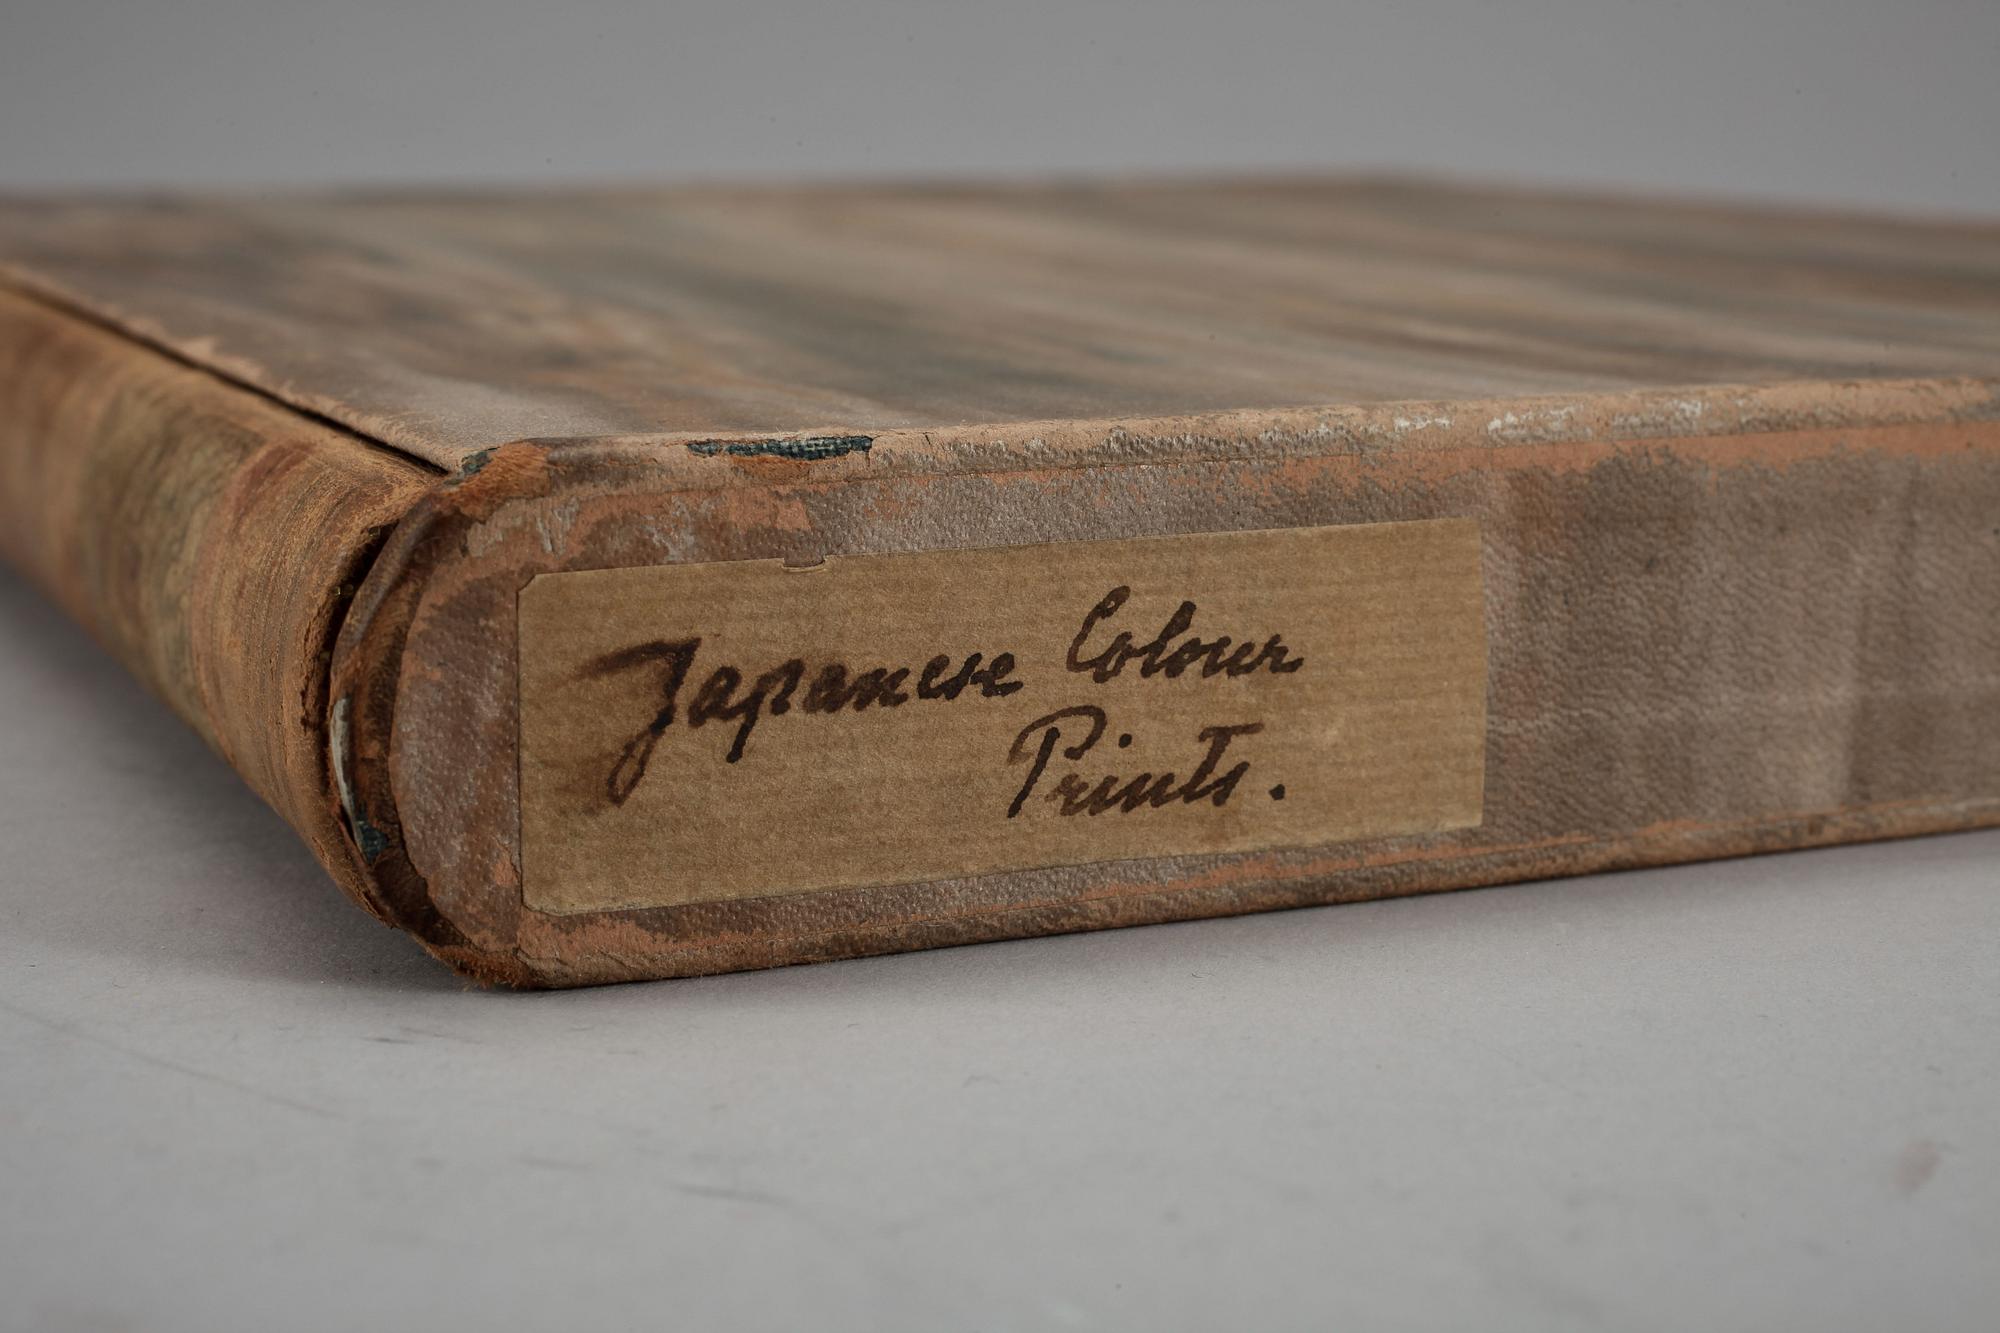 Japanese Colour
Prints.